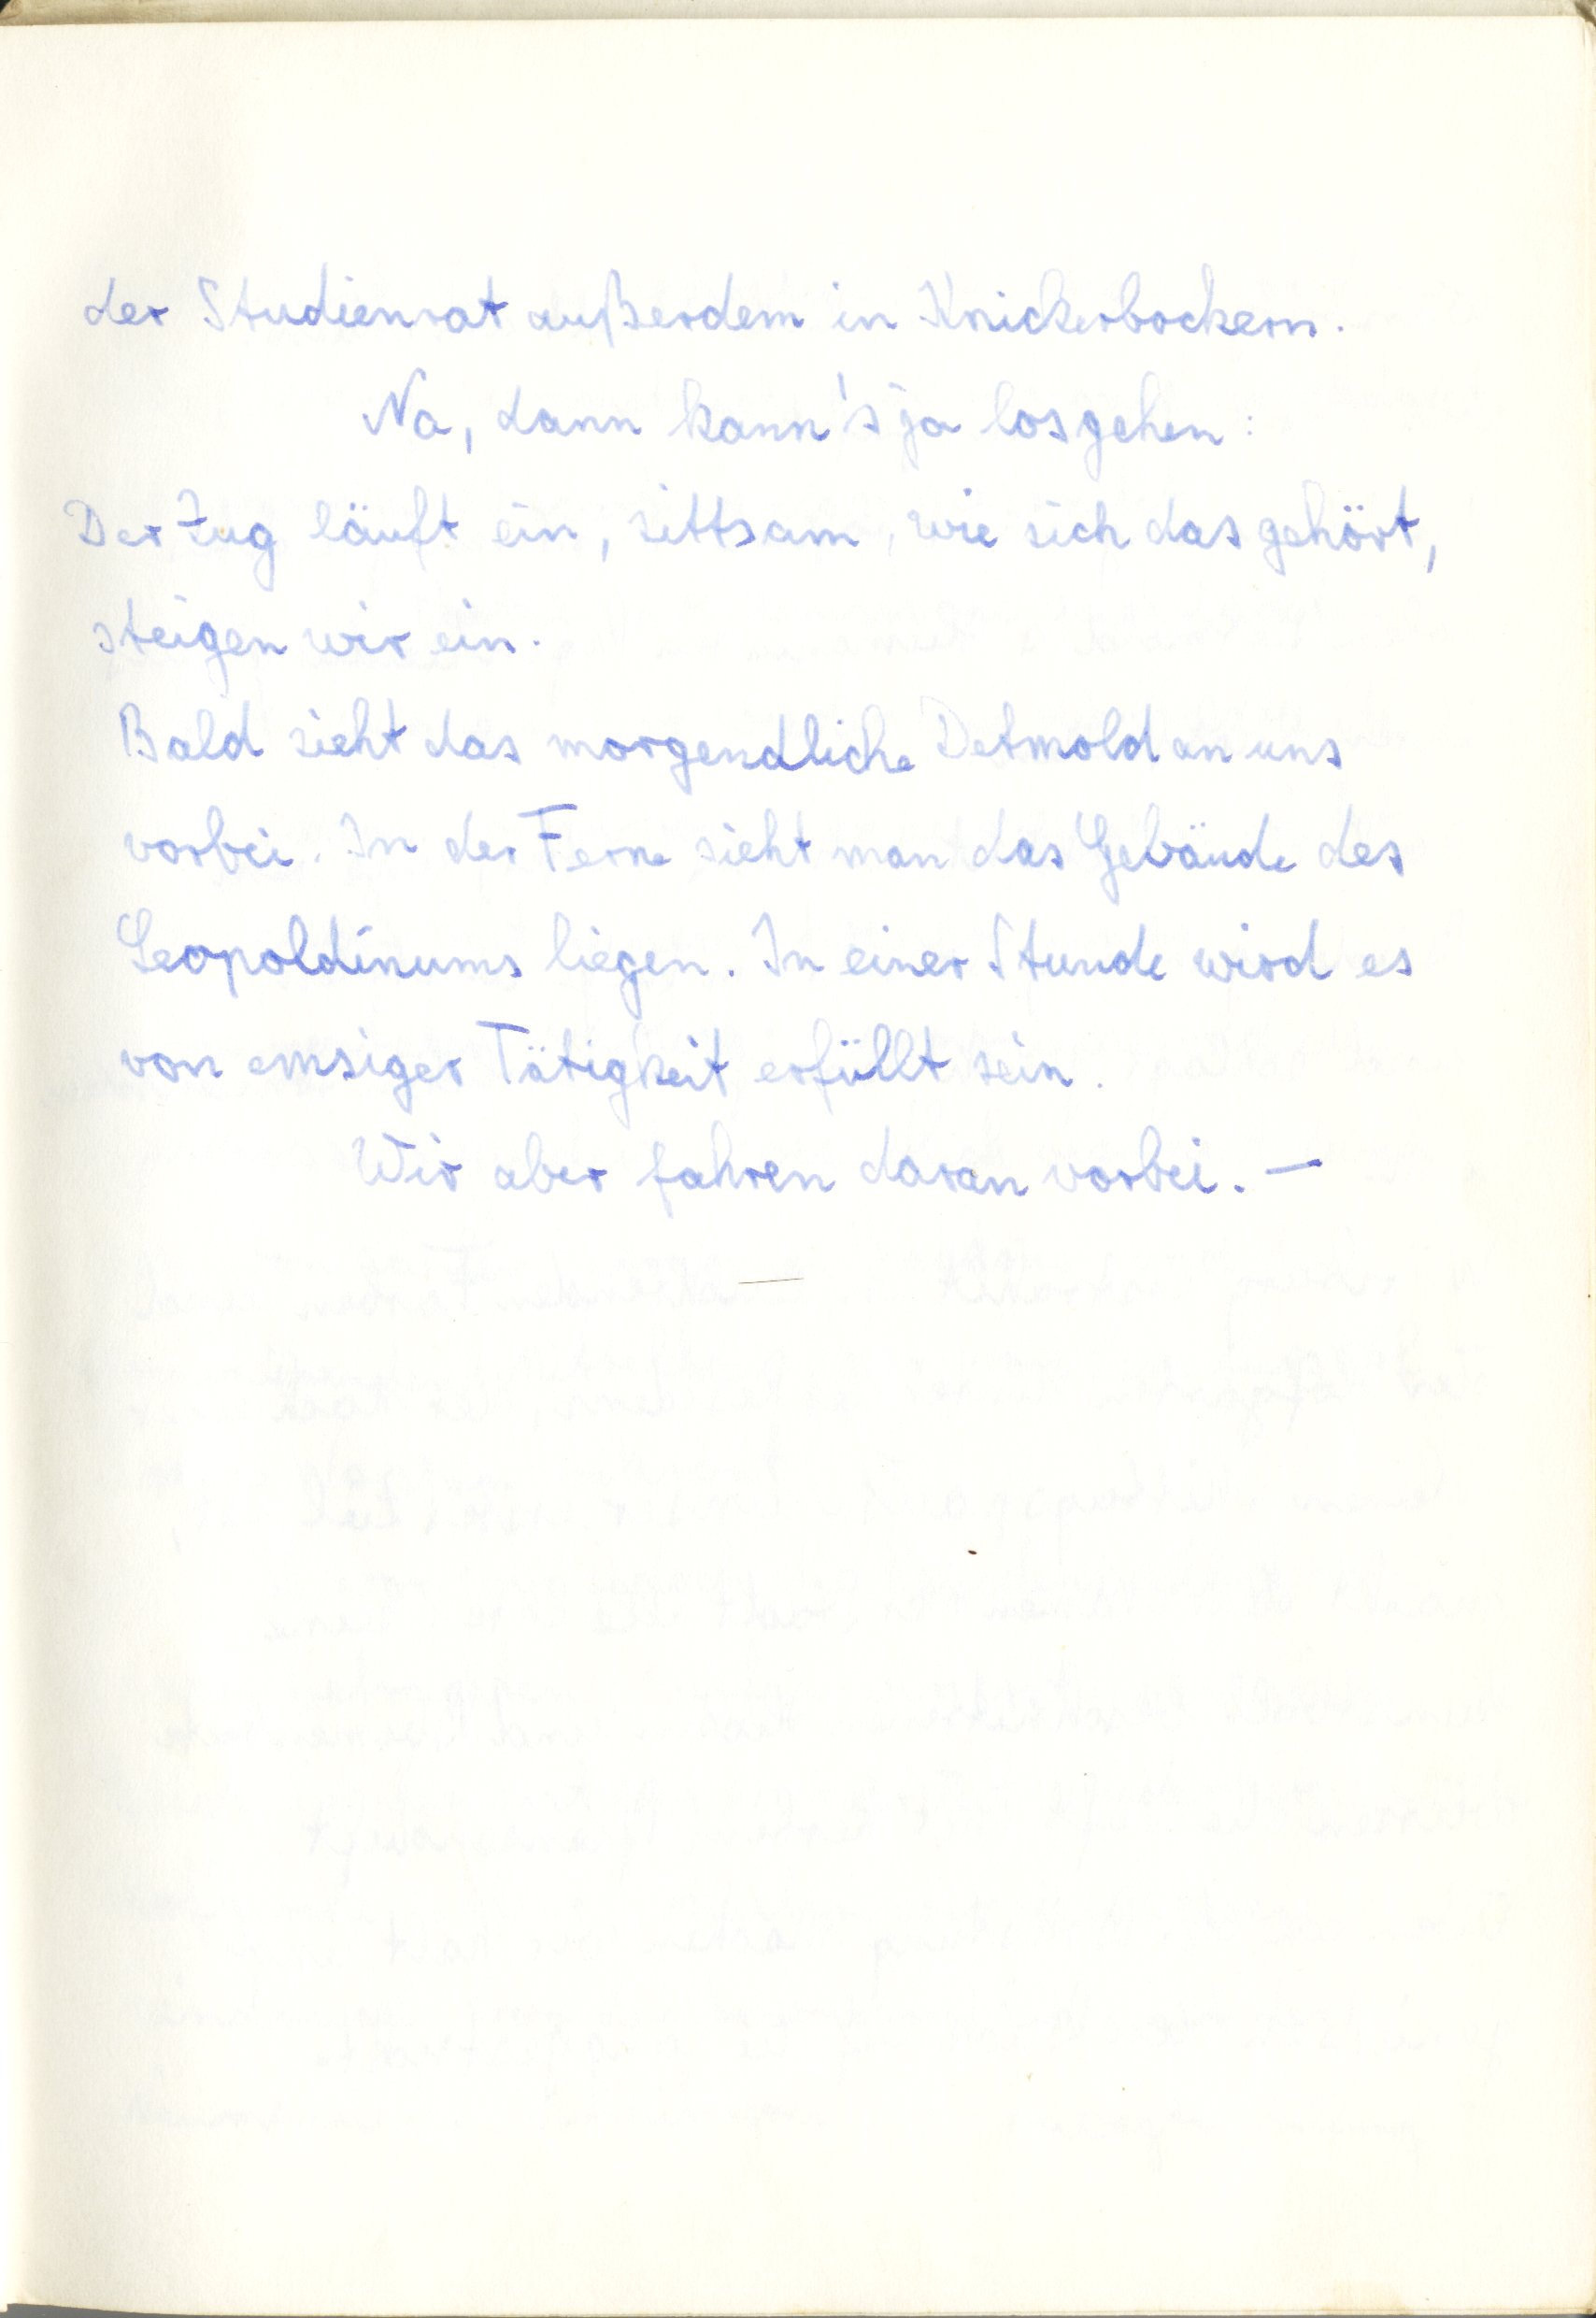 der Studienrat außerdem in Knickerbockern.
Na, dann kann's ja losgehen:
Der Zug läuft ein, sittsam, wie sich das gehört,
steigen wir ein.
Bald zieht das morgendliche Detmold an uns
vorbei. In der Ferne sieht man das Gebäude des
Leopoldinums liegen. In einer Stunde wird es
von emsiger Tätigkeit erfüllt sein.
Wir aber fahren daran vorbei. —